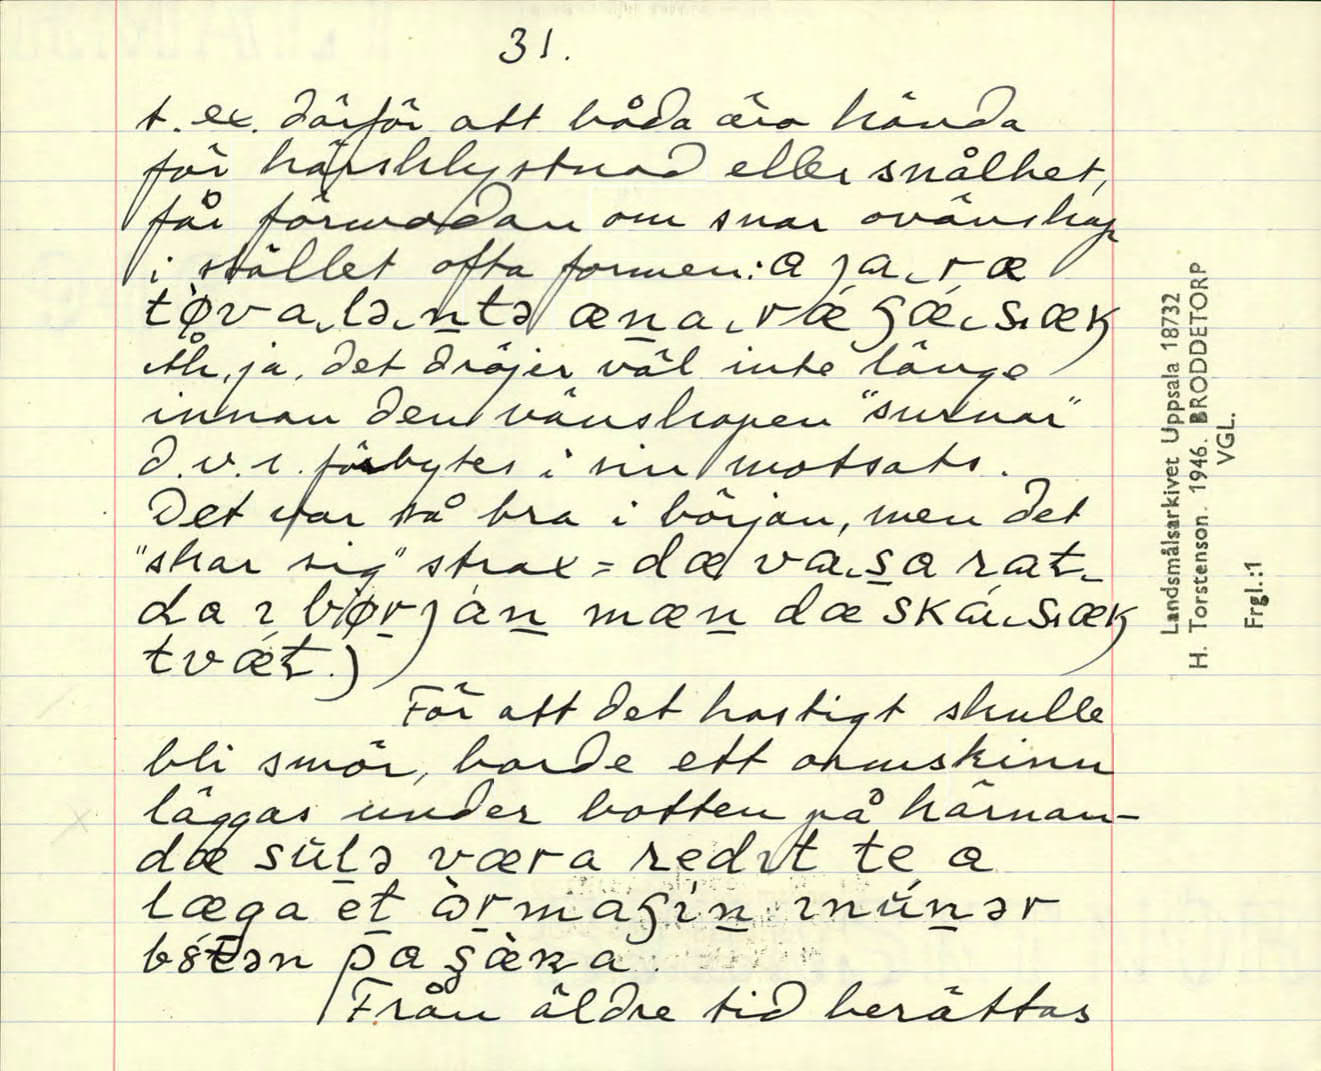 31.
t. ex. därför att båda äro kända
för härsklystnad eller snålhet,
får förmodan om snar ovänskap
i stället ofta formen: a ja, ræ
tøva, lə, ntə æna, ræ gæ, sıæk
Åh, ja, det dröjer väl inte länge
innan den vänskapen "surnar"
d.v.s. förbytes i sin motsats.
Det var så bra i början, men det
"skar sig" strax = dæ va, sa rat-
La ı børjan mæn dæ skά, sıæk
tvæt.)
För att det hastigt skulle
bli smör, borde ett ormskinn
läggas under botten på kärnan-
dæ sülə væra redıt te a
læga et òrmagin ınünər
bötən pa gæna.
Från äldre tid berättas
Landsmålsarkivet Uppsala 18732
H. Torstenson. 1946. BRODDETORP
VGL.
Frgl.:1